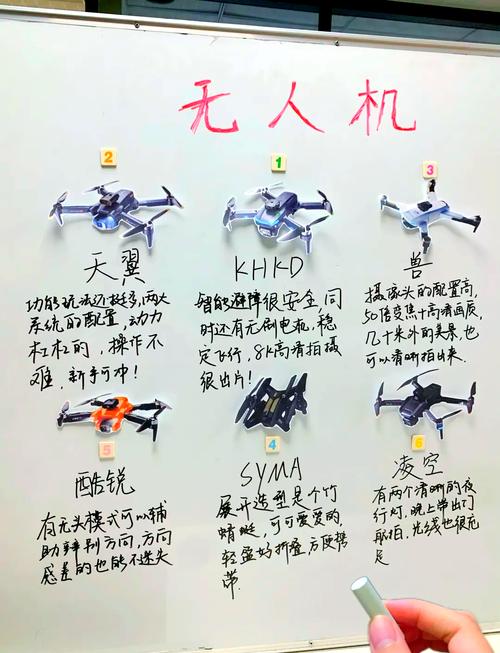 无人机
2
1
3
天翼
KHKD
兽
功能玩法还挺多,两大
系统的配置,动力
杠杠的,操作不
难,新手可冲!
智能避障很安全,同
时还有无刷电机,稳
定飞行,8K高清拍摄
很出片!
摄像头的配置高,
50倍变焦+高清画质,
几十米外的美景,也
可以清晰拍出来.
5
4
6
酷锐
SYMA
凌空
有无头模式可以辅
助辨别方向,方向
感差的也能不迷失
展开造型是个竹
蜻蜓,可可爱爱的,
轻盈好折叠,方便携
带.
有两个清晰的夜
行灯,晚上带出门
航拍,光线也很充
足